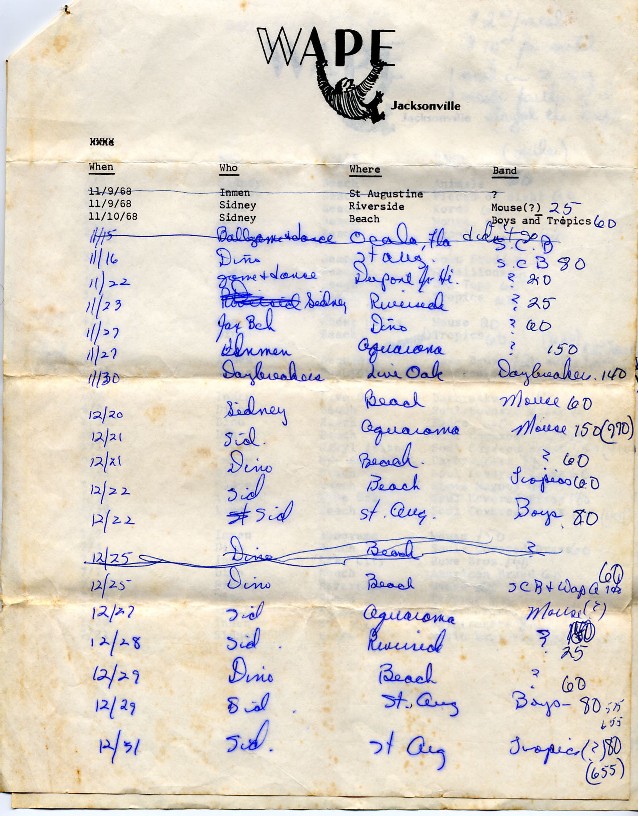 WAPE
Jacksonville
XXXX
When Who Where Band
11/9/68 Inmen St Augustine ?
11/9/68 Sidney Riverside Mouse(?) 25
11/10/68 Sidney Beach Boys and Tropics 60
11/15 Ballgame & dance Ocala, Fla didn't go S.C.B
11/16 Dino St Aug. S C B 80
11/22 game & dance Dupont Jr Hi. ? 20
11/23 Sidney Riverside ? 25
11/27 Jax Bch Dino ? 60
11/27 Inmen Aquarama ? 150
11/30 Daybreakers Live Oak Daybreakers. 140
12/20 Sidney Beach Mouse 60
12/21 Sid. Aquarama Mouse 150 (990)
12/21 Dino Beach. ? 60
12/22 Sid Beach Tropics 60
12/22 St Sid St. Aug. Boys 80
12/25 Dino Beach ?
12/25 Dino Beach SCB & Wape 60
12/27 Sid Aquarama Mouse(?)
12/28 Sid. Riverside ? 25
12/29 Dino Beach ? 60
12/29 Sid. St. Aug Boys- 80 575
655
12/31 Sid. St Aug Tropics (?) 80
(655)